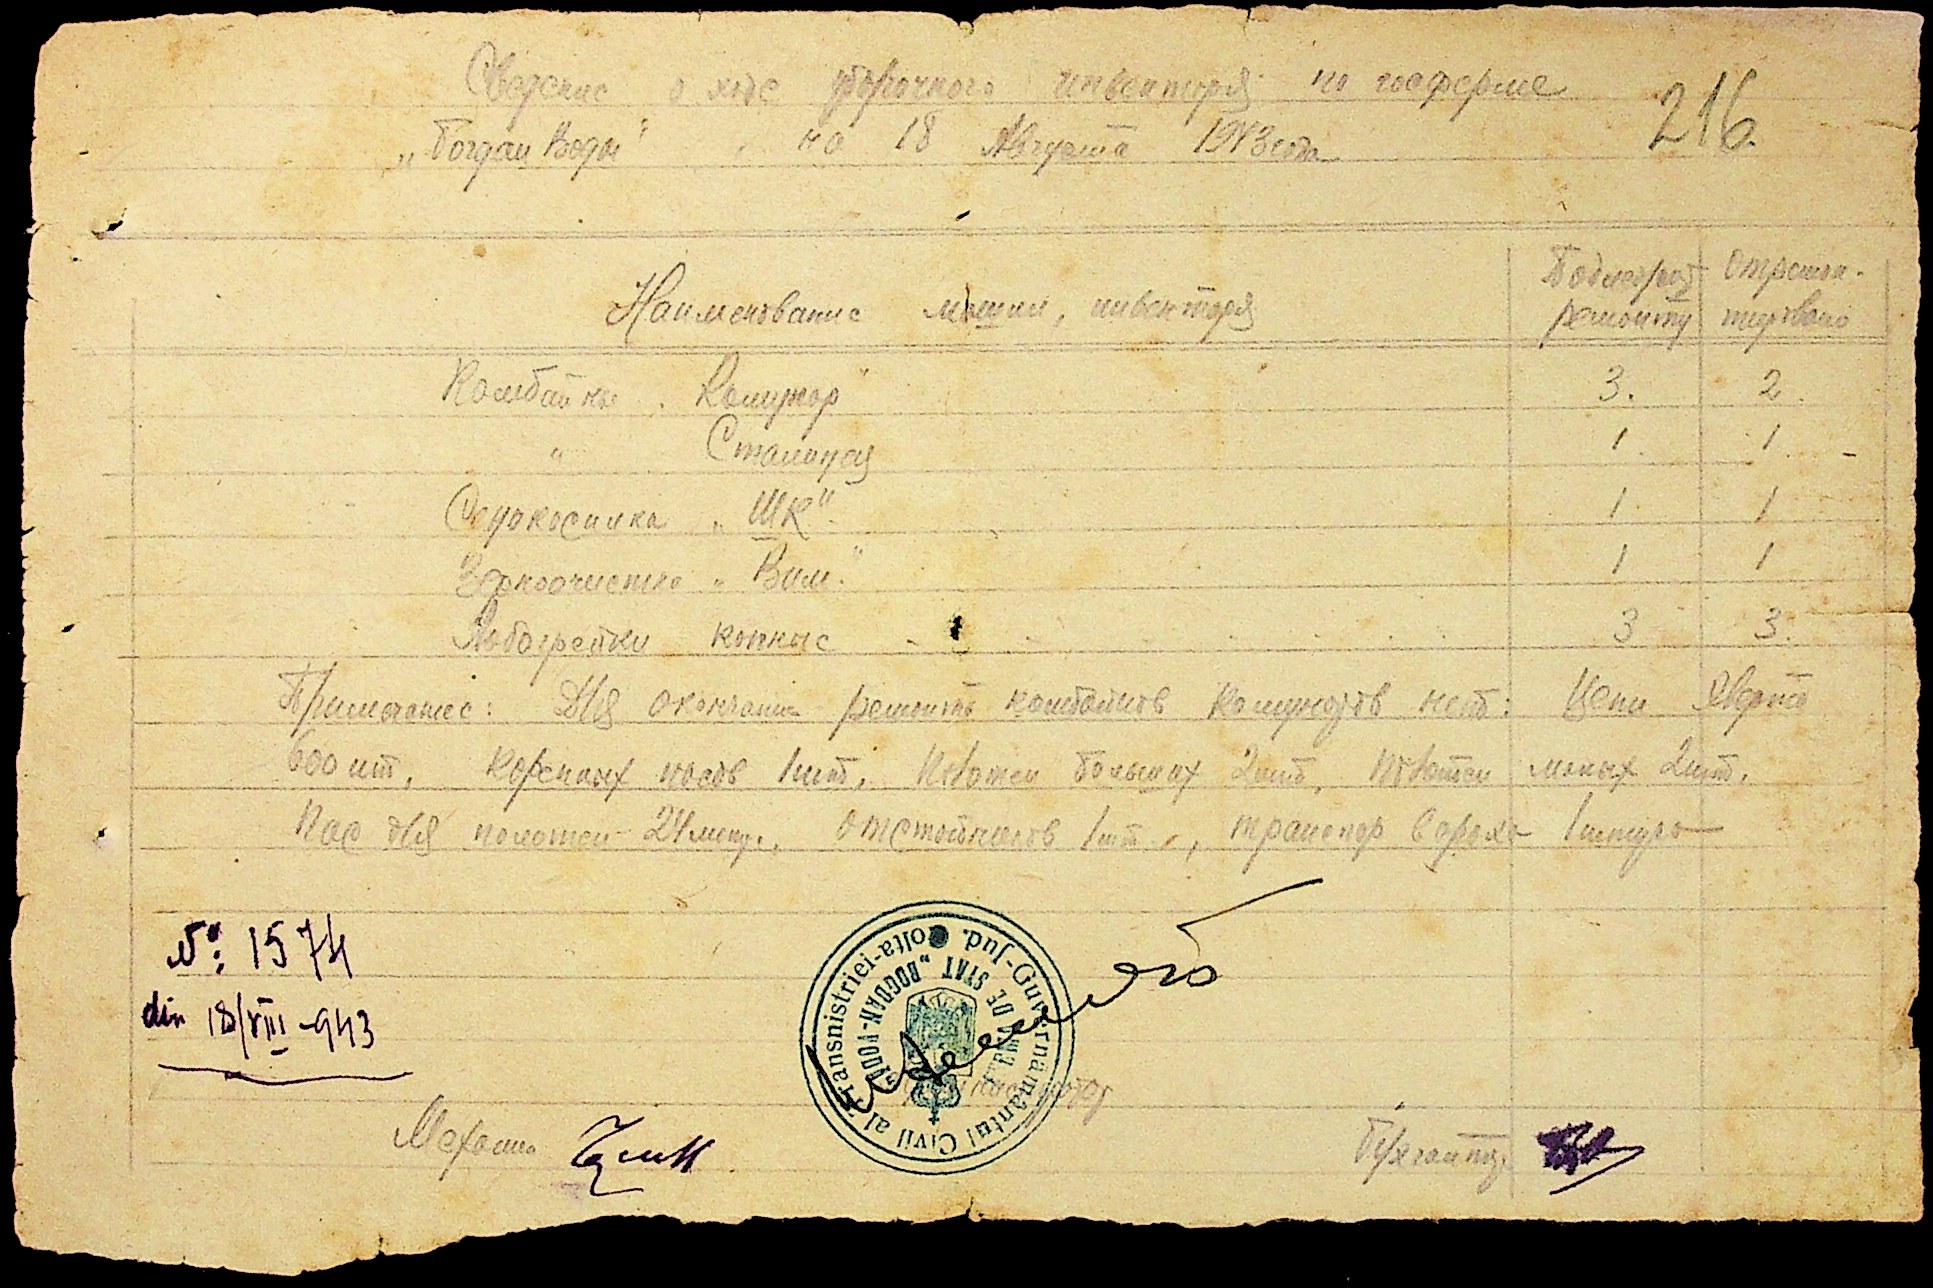 Сведение о ходе уборочного инвентаря по госферме
216.
„Богдан Воды" на 18 Августа 1943 года
Наименование машин, инвентаря
Подлежит ремонту
Отремон-
тировано
Комбайны „Комунар" 3. 2.
" Сталинец 1. 1.
Сенокосилка „ШК" 1 1
Зерноочистка „Вим." 1 1
Лобогрейки конные 3 3.
Примечание: Для окончания ремонта комбайнов Комунаров нет: Цепи Эверта
600 шт, коренных 1 шт, больших 2 шт, малых 2 шт.
для полотен 24 метр., 1 шт., транспор вороха 1 штука
№: 1574
din 18/VIII-943
Guvernamantul Civil al Transnistriei-Jud. Golta
FERMA DE STAT „BOGDAN-VODA"
Механик
Бухгалтер